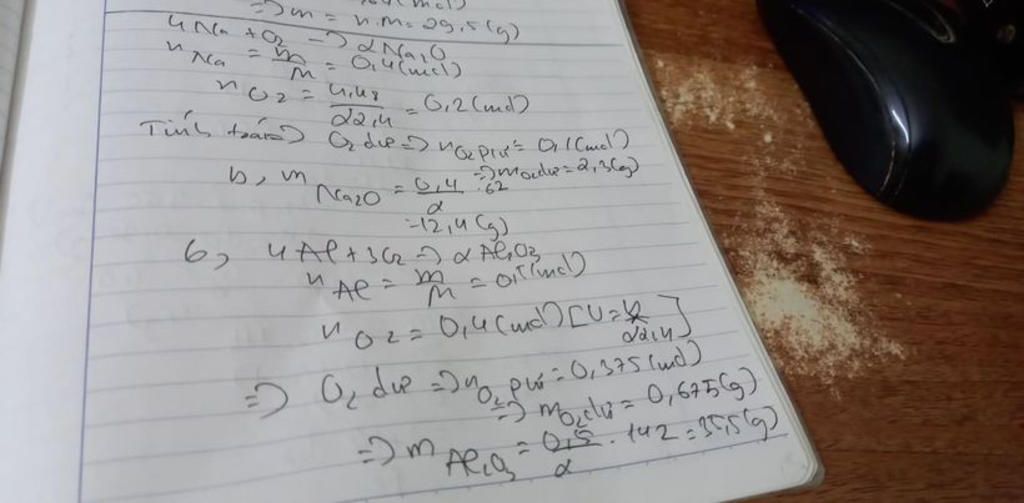 => m = n.M = 29,5(g)
4Na + O2 -> 2Na2O
nNa = m/M = 0,4(mol)
nO2 = 4,48/22,4 = 0,2(mol)
Tính toán => O2 dư => nO2 pư = 0,1(mol)
=> mO2 dư = 2,3(g)
b, mNa2O = 0,4/2 . 62
= 12,4(g)
6, 4Al + 3O2 => 2Al2O3
nAl = m/M = 0,5(mol)
nO2 = 0,4(mol) [V = V/22,4]
=> O2 dư => nO2 pư = 0,375(mol)
=> mO2 dư = 0,675(g)
=> mAl2O3 = 0,5/2 . 142 = 35,5(g)